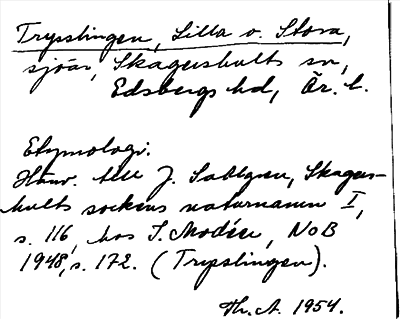 Trysslingen, Lilla o. Stora,
sjöar, Skagershults sn,
Edsbergs hd, Ör. l.
Etymologi.
Hänv. till J. Sahlgren, Skagers-
hults sockens naturnamn I,
s. 116, hos I. Modéer, NoB
1948, s. 172. (Trysslingen).
Th. A. 1954.